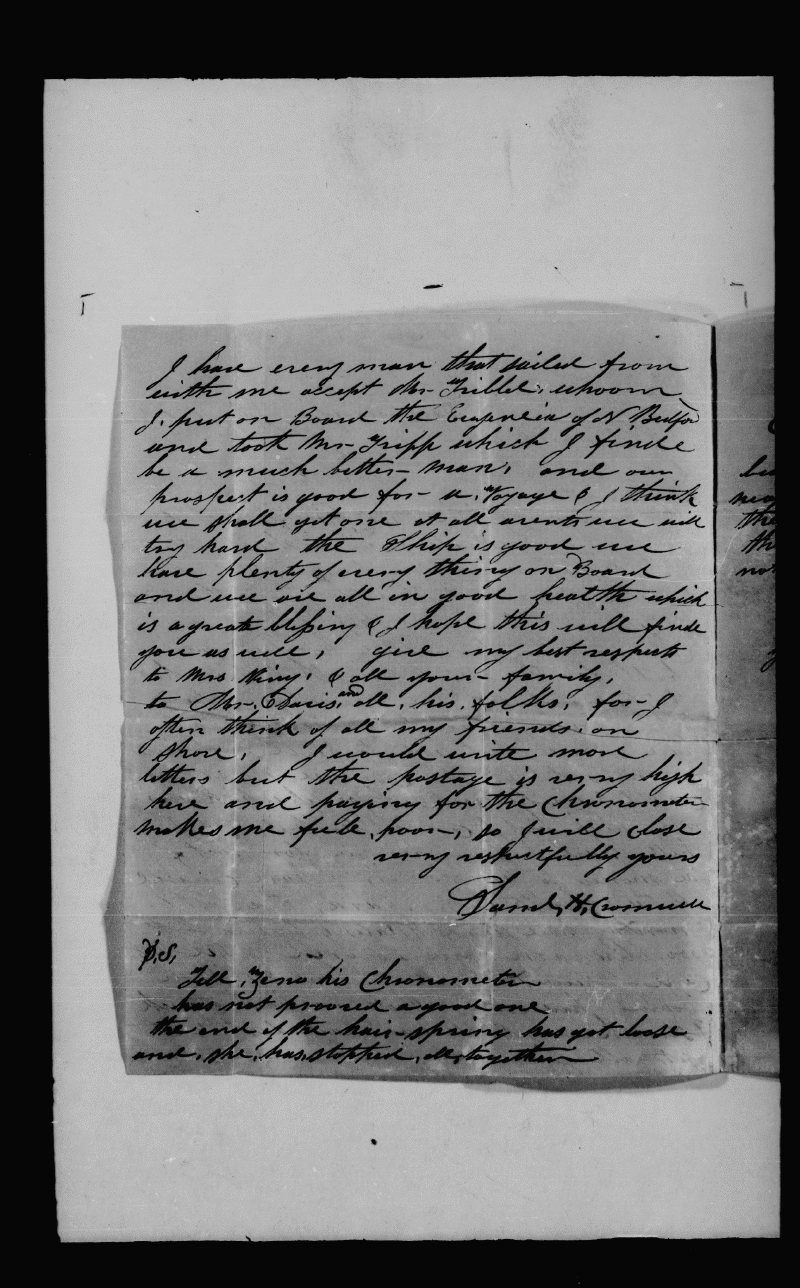 I have every man that sailed from
with me accept Mr Tribble, whoom
I put on Board the of N Bedfor
and took Mr Tripp which I finde
be a much better man, and our
prospect is good for a Voyage & I think
we shall get one at all events we will
try hard the Ship is good we
have plenty of every thing on Board
and we are all in good health which
is a greate blessing & I hope this will finde
you as well, give my best respects
to Mrs King, & all your family,
to Mr. Davis, and all, his, folks, for I
often think of all my friends on
Shore, I would write more
letters but the postage is very high
here and paying for the Chronometer
makes me feele poor, so I will close
very respectfully yours
H, Cromwell
P.S,
Tell, Zeno his Chronometer
has not prooved a good one
the end of the hair-spring has got loose
and, she, has, stopped, all, together